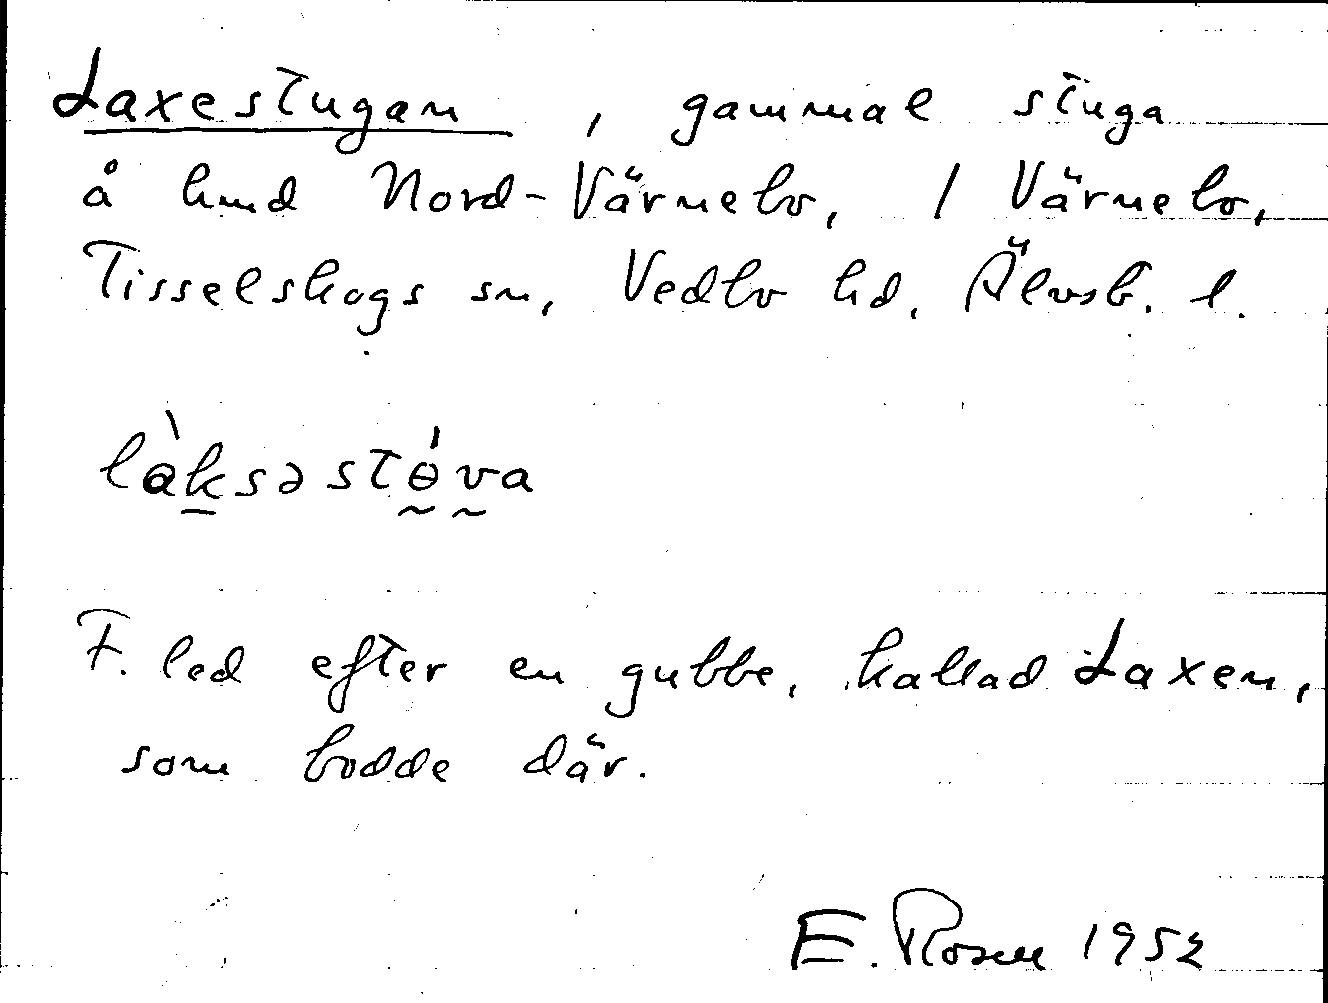 Laxestugan, gammal stuga
å hmd Nord-Värnebo, / Värnebo,
Tisselskogs sn, Vedbo hd. Älvsb. l.
làksəstɵ́va
F. led efter en gubbe, kallad Laxen,
som bodde där.
E. Rosell 1952